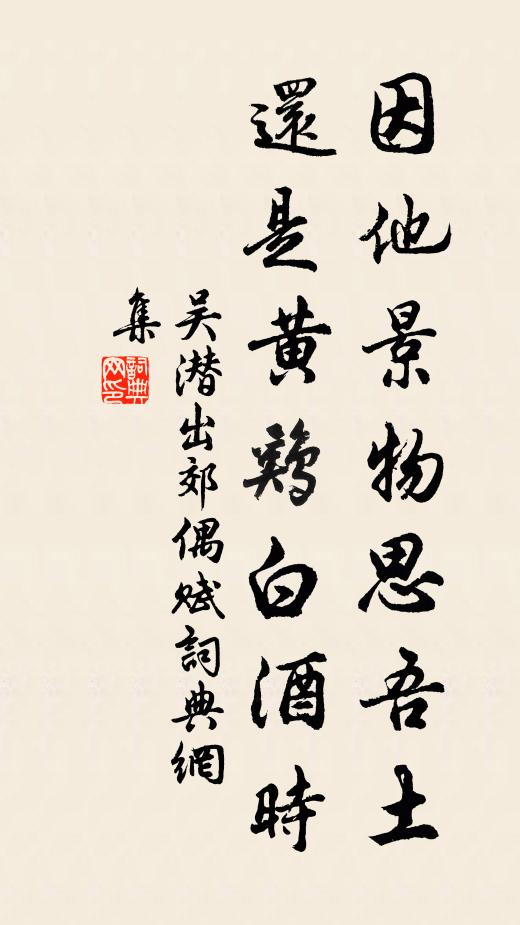 因他景物思吾土
還是黃鷄白酒時
吴潜出郊偶赋詞典網
集
詞典網印